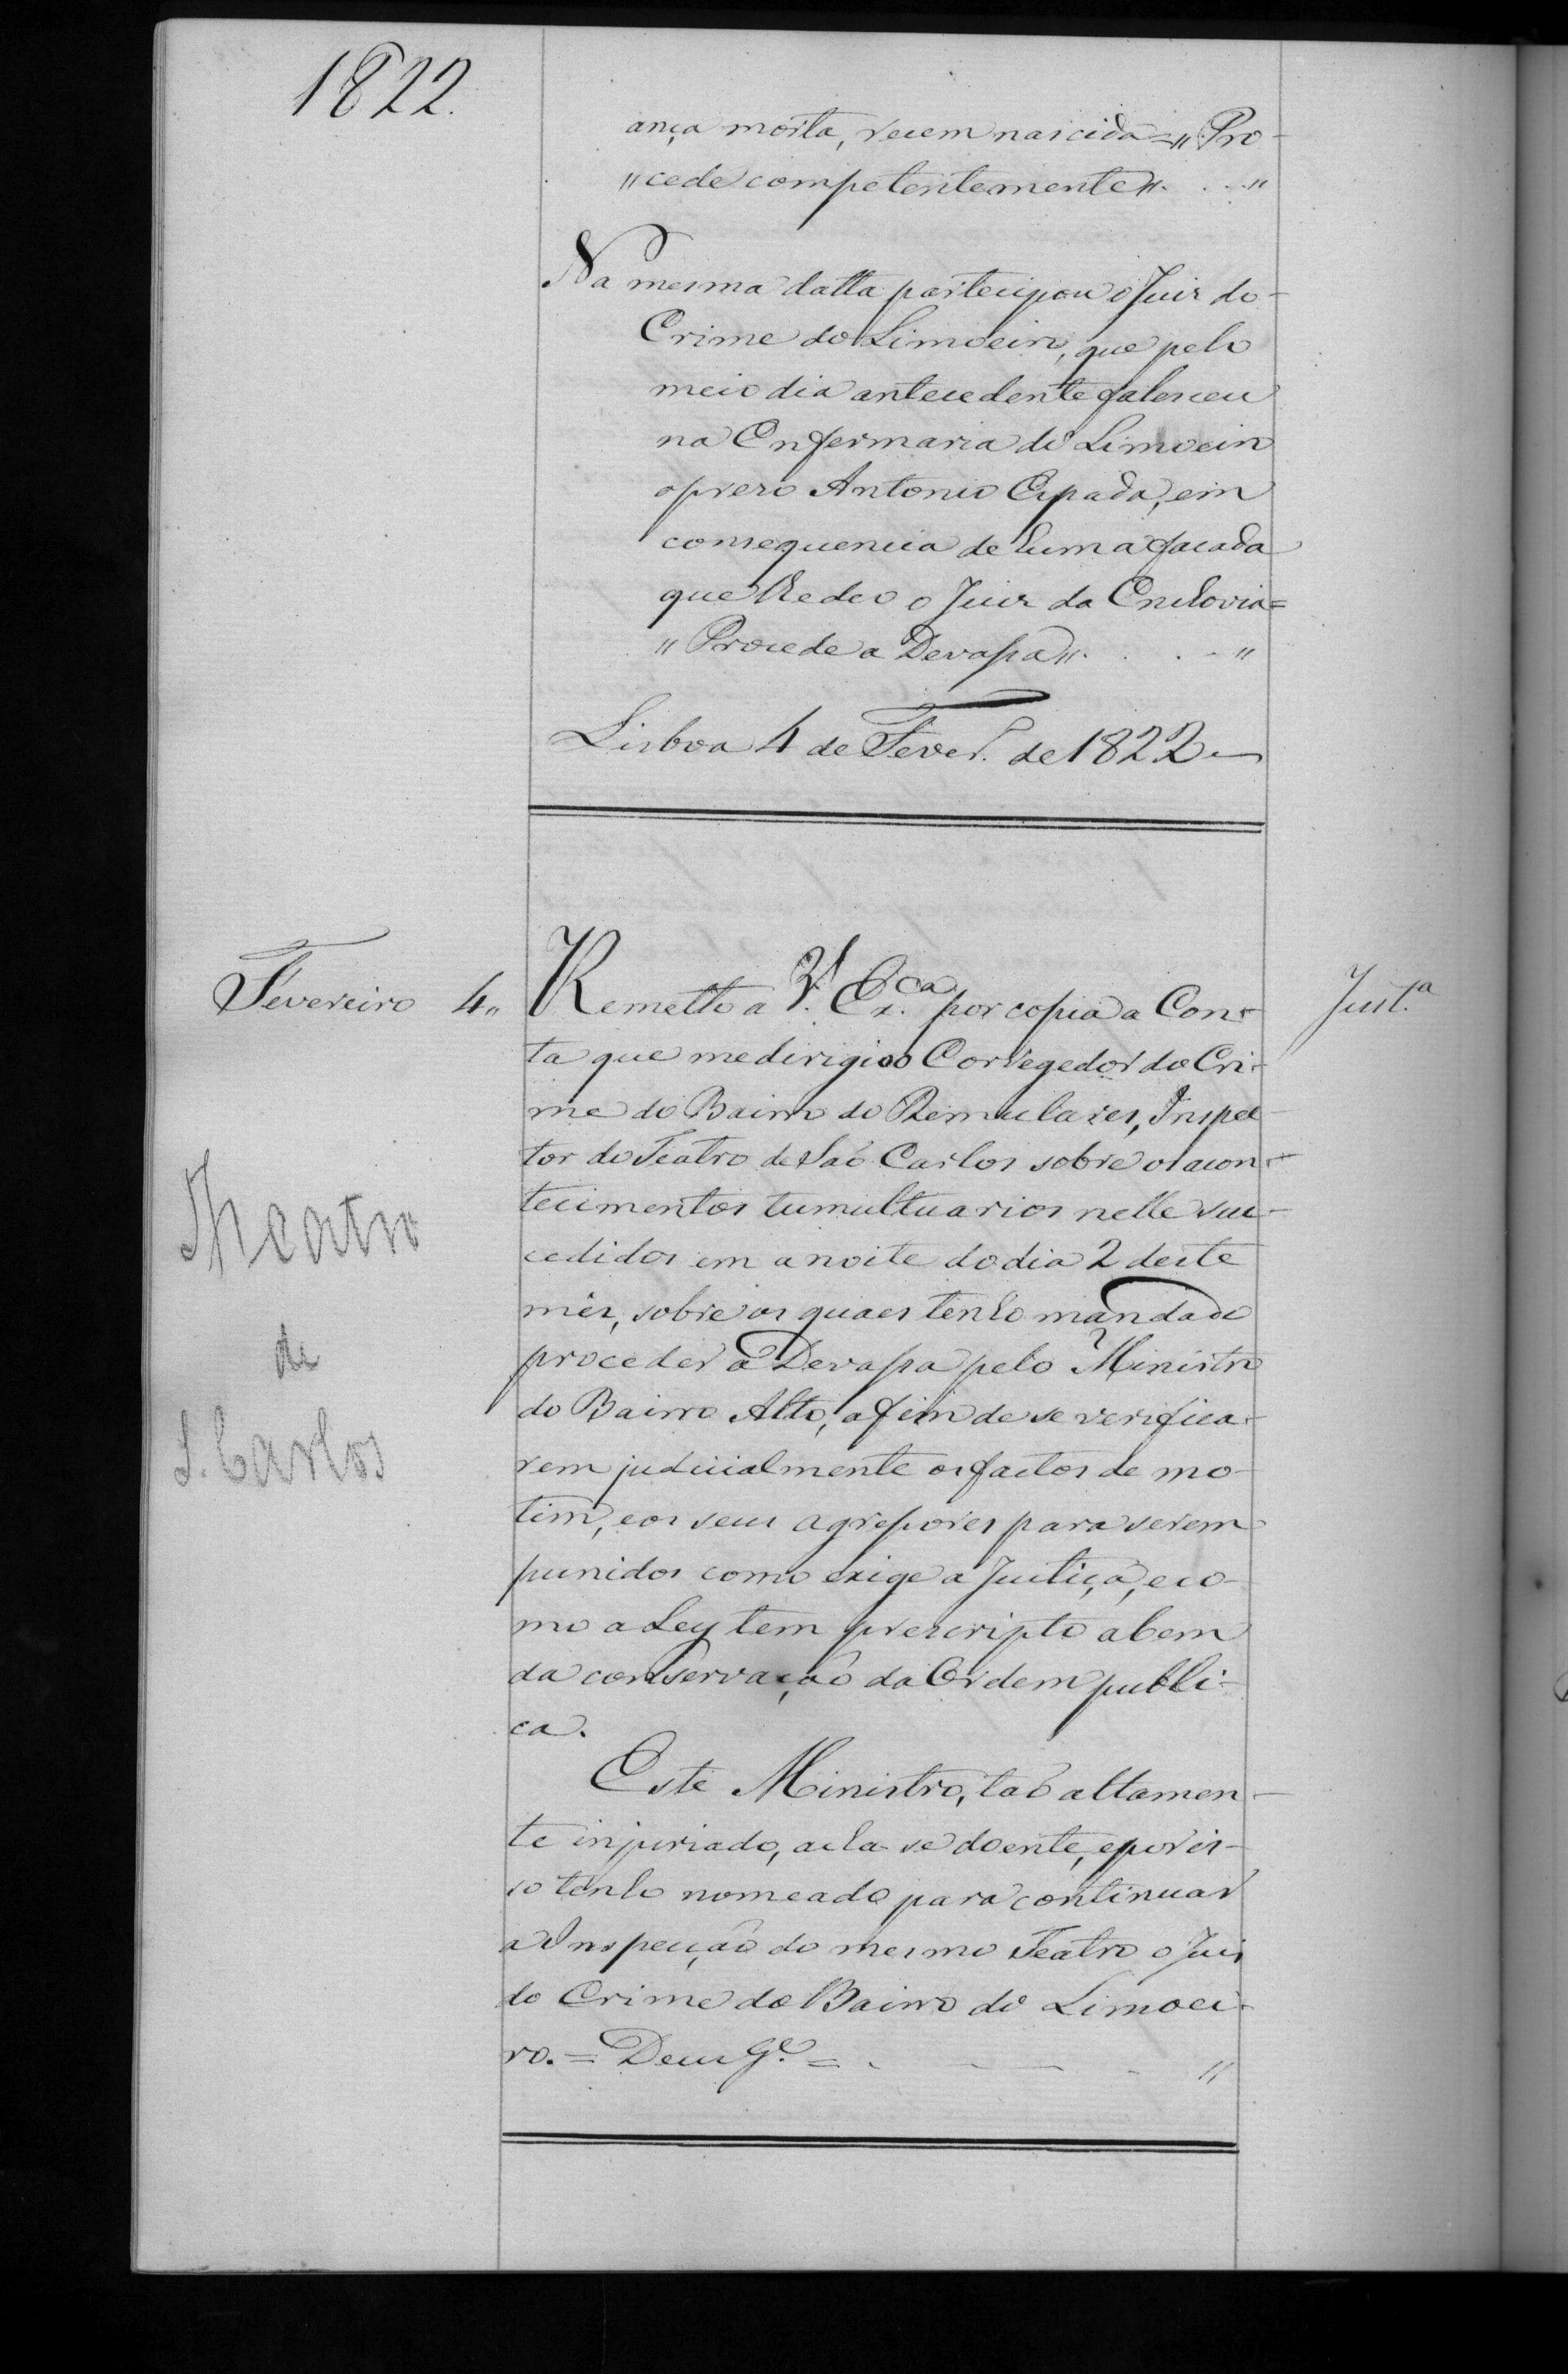 1822.
ança morta, recem nascida = „ Pro-
„ cede competentemente „. . . „
Na mesma datta partecipou o Juiz do
Crime do Limoeiro, que pelo
meio dia antecedente faleceu
na Enfermaria do Limoeiro
o prezo Antonio Espada, em
consequencia de huma facada
que lhe deo o Juiz da Enxovia =
„ Procede a Devassa „. . . „
Lisboa 4 de Fever.º de 1822
Fevereiro 4„
Remetto a V. Ex.ca por copia a Con-
ta que me dirigio o Corregedor do Cri-
me do Bairro do Remulares, Inspec-
tor do Teatro de Saõ Carlos sobre os acon-
tecimentos tumultuarios nelle suc-
cedidos em a noite do dia 2 deste
mês, sobre os quaes tenho mandado
proceder a Devassa pelo Ministro
do Bairro Alto, a fim de se verifica-
rem judicialmente os factos de mo-
tim, e os seus agressores para serem
punidos como exige a Justiça, e co-
mo a Ley tem prescripto a bem
da conservação da Ordem publi-
ca.
Este Ministro, taõ altamen-
te injuriado, acha-se doente, e por is-
so tenho nomeado para continuar
a Inspecção do mesmo Teatro o Juiz
do Crime do Bairro do Limoei-
ro. = Deus G.e = . - - - „
Just.ª
Theatro
de
S. Carlos